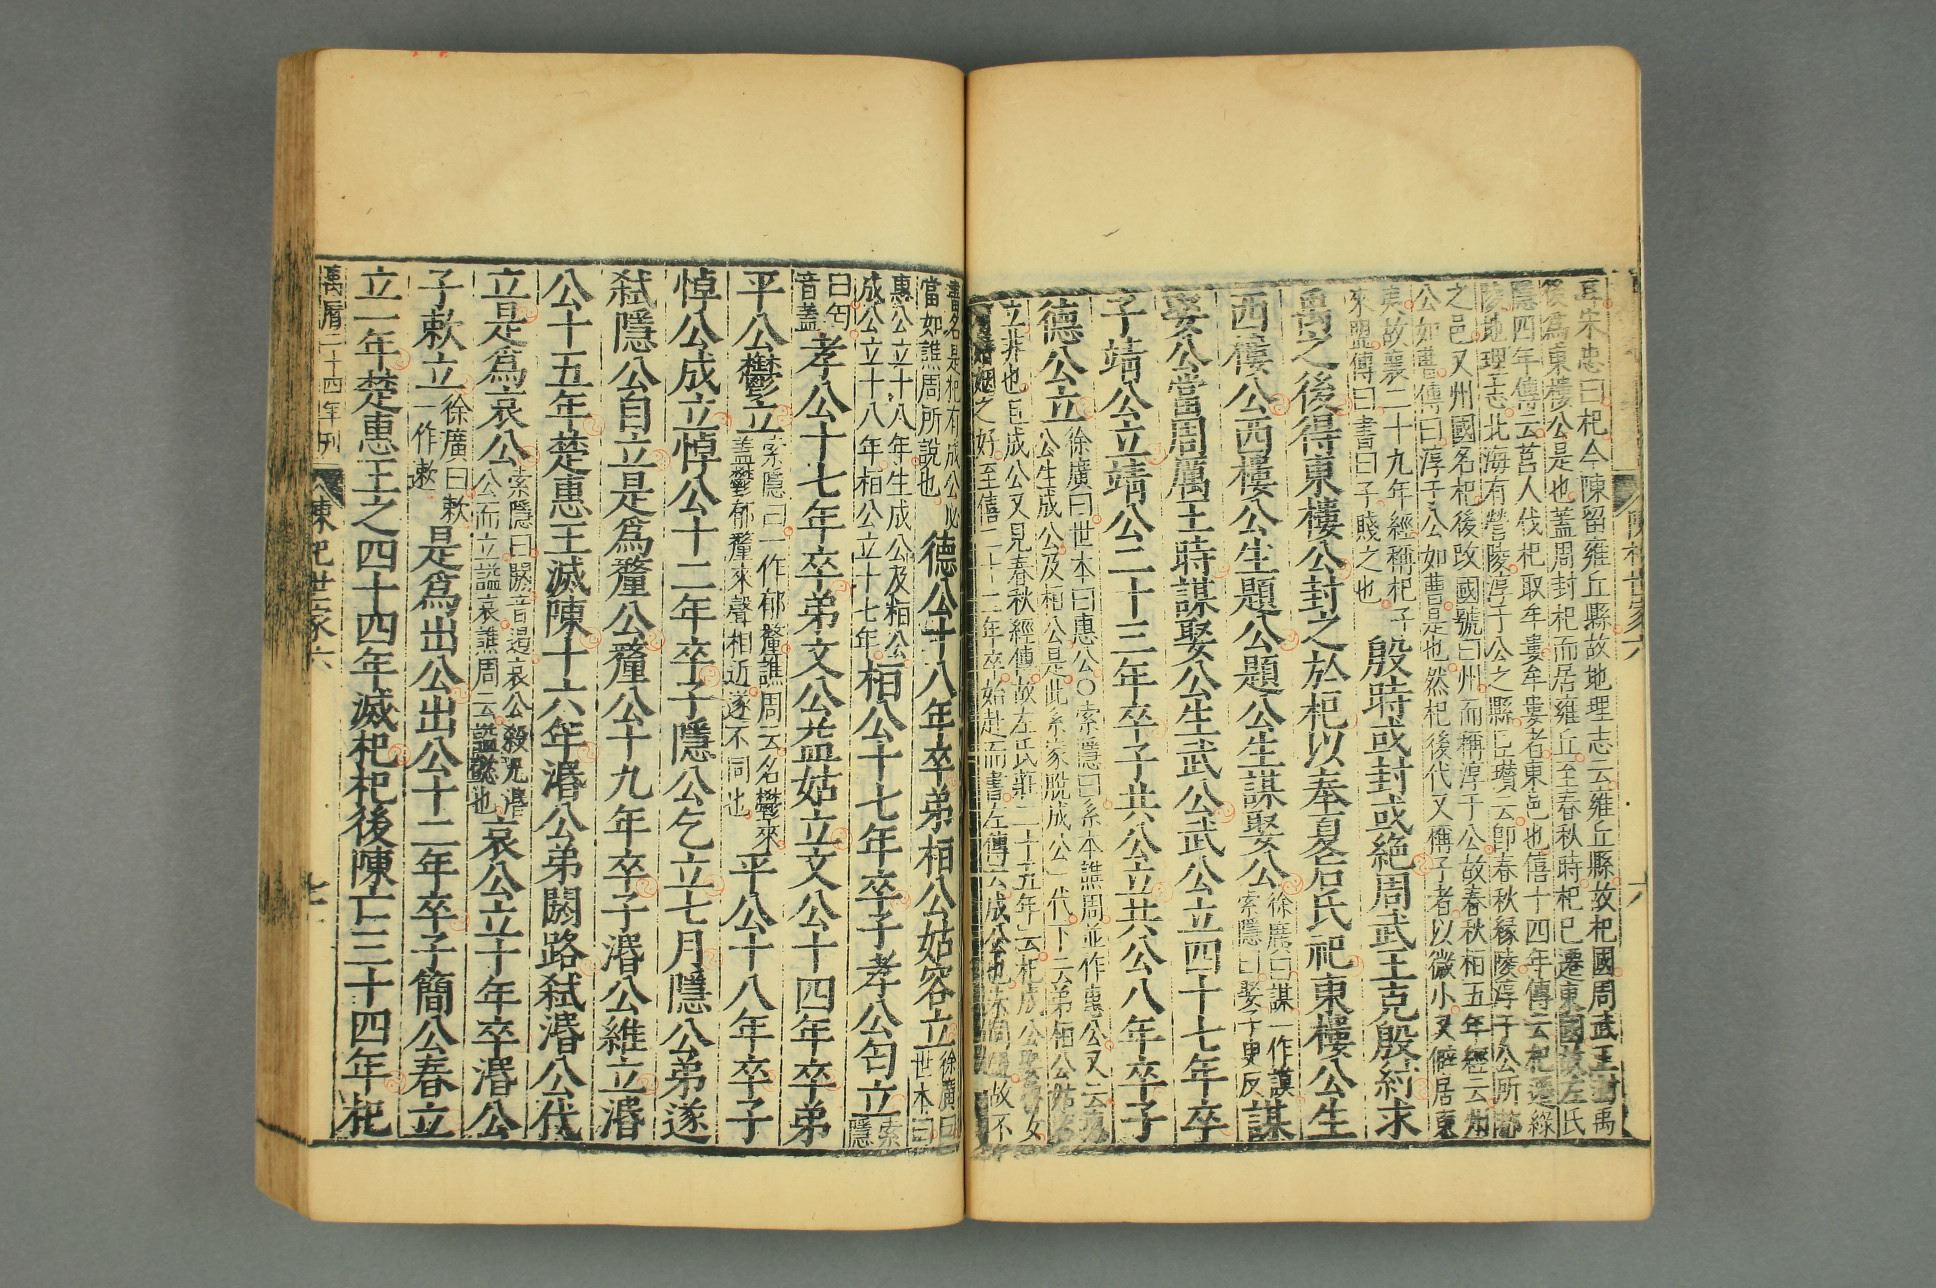 陳杞世家六 六
耳宋忠曰杞今陳留雍丘縣故地理志云雍丘縣故杞國周武王封禹
後為東樓公是也蓋周封杞而居雍丘至春秋時杞已遷東國故左氏
隱四年傳云莒人伐杞取牟婁牟婁者東邑也僖十四年傳云杞遷緣
陵地理志北海有營陵淳于公之縣臣瓚云即春秋緣陵淳于公所都
之邑又州國名杞後改國號曰州而稱淳于公故春秋桓五年經云州
公如曹傳曰淳于公如曹是也然杞後代又稱子者以微小又僻居東
夷故襄二十九年經稱杞子
來盟傳曰書曰子賤之也
殷時或封或絕周武王克殷紂求
禹之後得東樓公封之於杞以奉夏后氏祀東樓公生
西樓公西樓公生題公題公生謀娶公
徐廣曰謀一作謨
索隱曰娶子臾反
謀
娶公當周厲王時謀娶公生武公武公立四十七年卒
子靖公立靖公二十三年卒子共公立共公八年卒子
德公立
徐廣曰世本曰惠公○索隱曰系本譙周並作惠公又云惠
公生成公及桓公是此系家脫成公一代下云弟桓公姑容
立非也且成公又見春秋經傳故左氏莊二十五年云杞成公娶魯女
有婚姻之好至僖二十二年卒始赴而書左傳云成公也未同盟故不
書名是杞有成公必
當如譙周所說也
德公十八年卒弟桓公姑容立
徐廣曰
世本曰
惠公立十八年生成公及桓公
成公立十八年桓公立十七年
桓公十七年卒子孝公匄立
索
隱
曰匄
音蓋
孝公十七年卒弟文公益姑立文公十四年卒弟
平公鬱立
索隱曰一作郁釐譙周云名鬱來
蓋鬱郁釐來聲相近遂不同也
平公十八年卒子
悼公成立悼公十二年卒子隱公乞立七月隱公弟遂
弒隱公自立是爲釐公釐公十九年卒子湣公維立湣
公十五年楚惠王滅陳十六年湣公弟閼路弒湣公代
立是爲哀公
索隱曰閼音遏哀公殺兄湣
公而立諡哀譙周云諡懿也
哀公立十年卒湣公
子敕立
徐廣曰敕
一作敕
是爲出公出公十二年卒子簡公春立
立一年楚惠王之四十四年滅杞杞後陳亡三十四年杞
萬曆二十四年刊
陳杞世家六 七